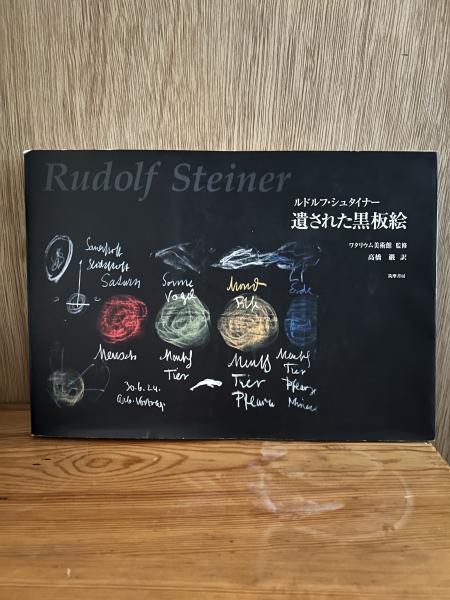 Rudolf Steiner
ルドルフ・シュタイナー
遺された黒板絵
ワタリウム美術館 監修
高橋 巖 訳
筑摩書房
Sauerstoff
Saturn
Sonne
Mond
Erde
Vogel
Mensch
Mensch
Tier
Mensch
Tier
Pflanz
Mensch
Tier
Pflanz
Miner
30.6.24.
Arb. Vortrag